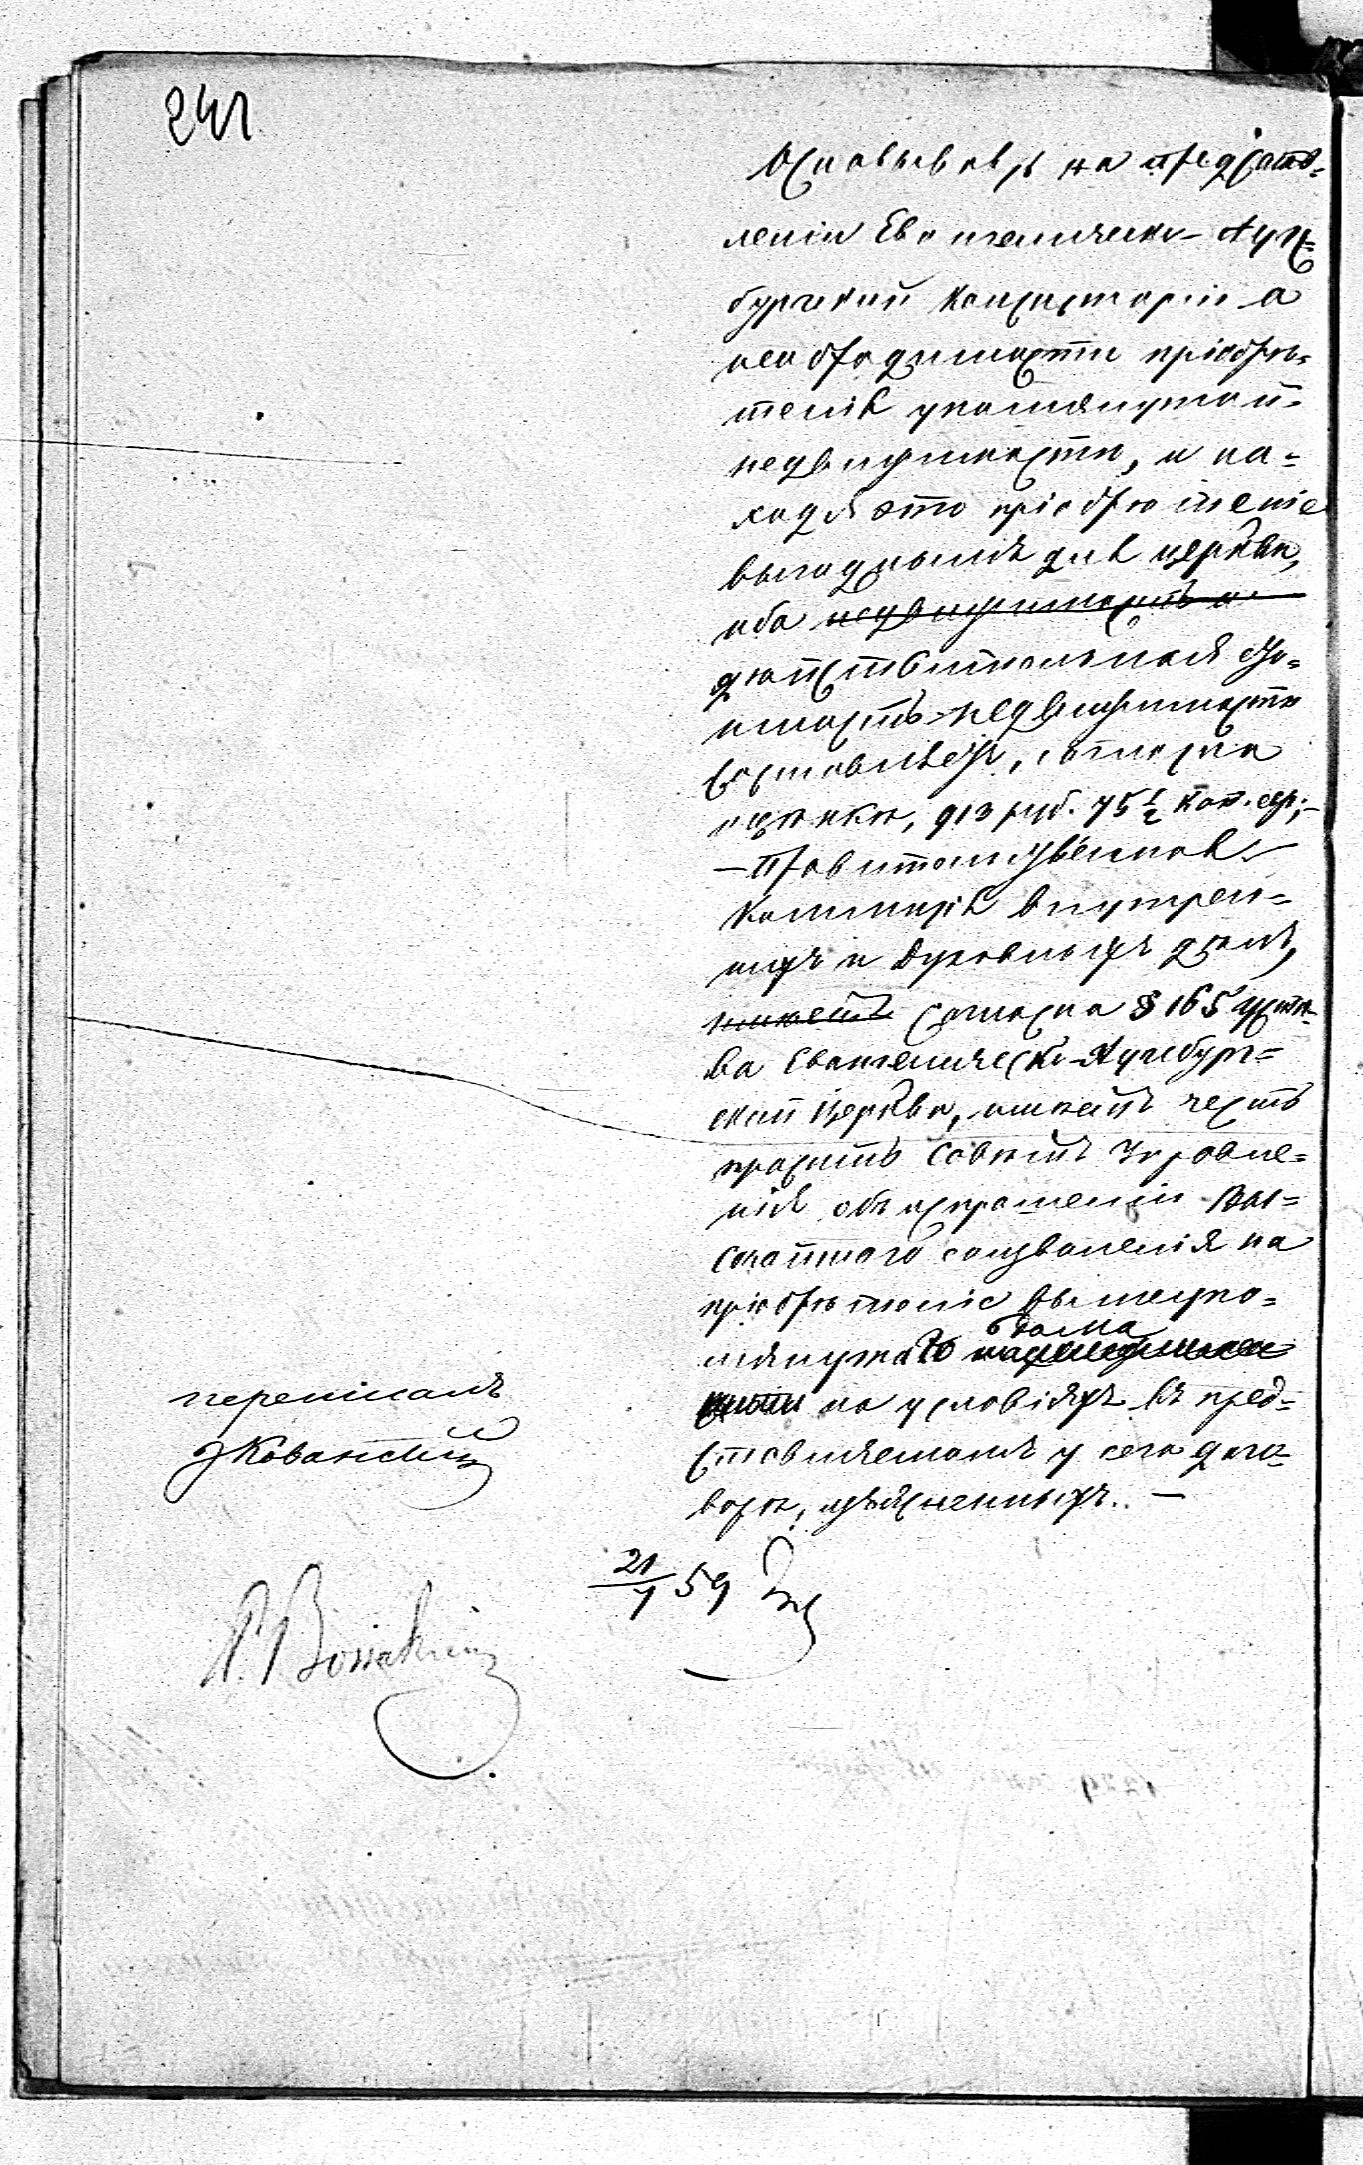 241
Основываясь на представ=
леніи Евангелическо-Аугс=
бургской Консисторіи о
необходимости пріобрѣ=
тенія упомянутой=
недвижимости, и на=
ходя это пріобрѣтеніе
выгоднымъ для церкви,
ибо недвижимость и
дѣйствительная сто=
имость недвижимости
составляетъ, согласно
оцѣнки, 913 руб. 75 1/2 коп. сер.;—
—Правительственная
Коммисія Внутрен=
нихъ и Духовныхъ дѣлъ,
имѣетъ согласно § 165 уста=
ва Евангелическо-Аугсбург=
ской Церкви, имѣетъ честь
просить Совѣтъ Управле=
нія объ испрошеніи Вы=
сочайшаго соизволенія на
пріобрѣтеніе вышеупо=
дома
мянутаго
на условіяхъ въ пред=
ставляемомъ у сего дого=
ворѣ, изъясненныхъ. —
переписалъ
21/7 59